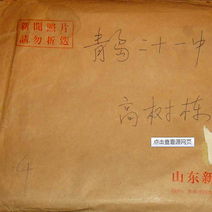 新聞照片
請勿折迭
青岛二十一中
高树栋
点击查看源网页
4
山东新